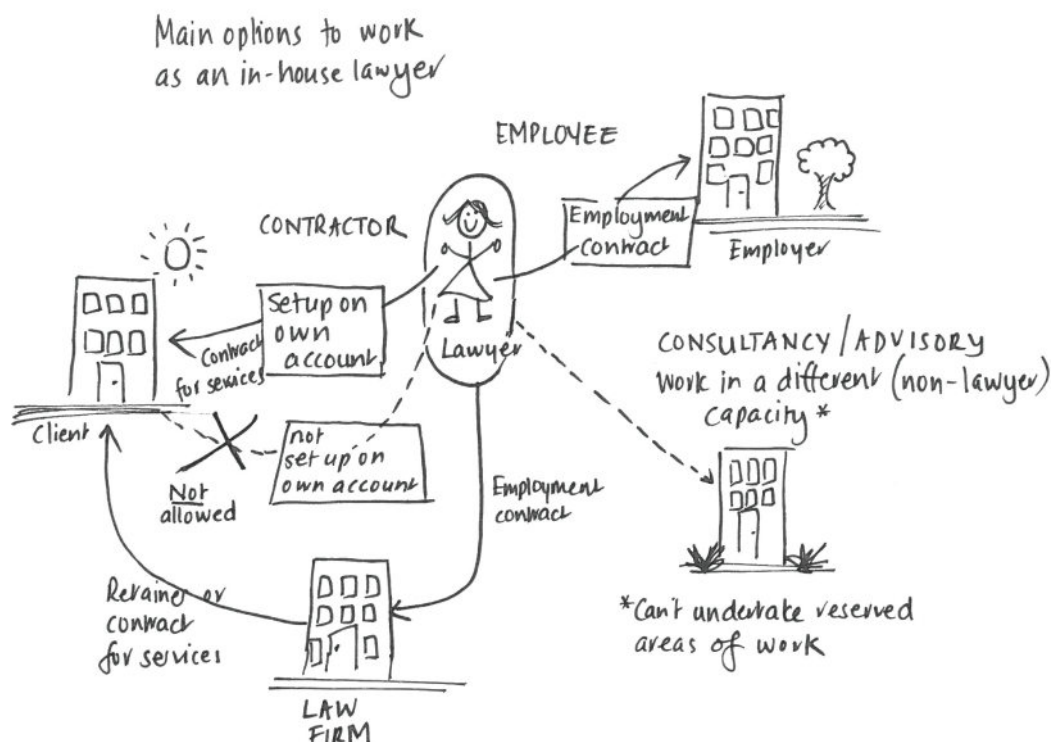 Main options to work
as an in-house lawyer
EMPLOYEE
Employment
contract
Employer
CONTRACTOR
Setup on
own
account
Contract
for services
Client
Lawyer
not
set up on
own account
Not
allowed
Employment
contract
CONSULTANCY/ADVISORY
Work in a different (non-lawyer)
capacity*
*Can't undertake reserved
areas of work
Retainer or
contract
for services
LAW
FIRM